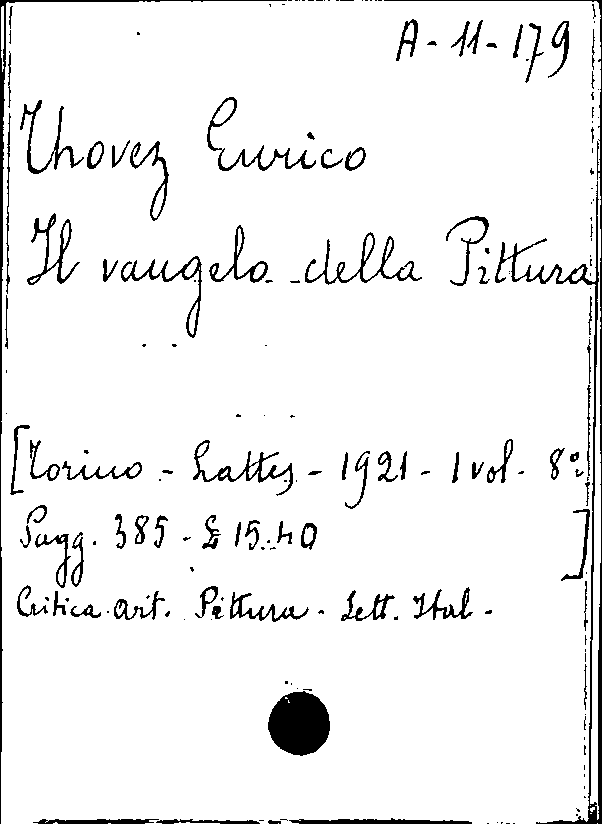 A-11-179
Thovez Enrico
Il vangelo della Pittura
[Torino - Lattes - 1921 - 1 vol. 8°
Pagg. 385 - £ 15.40 ]
Critica art. Pittura - Lett. Ital -